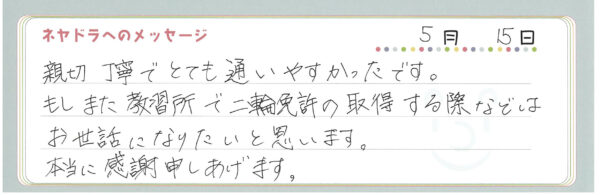 ネヤドラへのメッセージ
5月 15日
親切 丁寧でとても通いやすかったです。
もしまた教習所で二輪免許の取得する際などは
お世話になりたいと思います。
本当に感謝申しあげます。